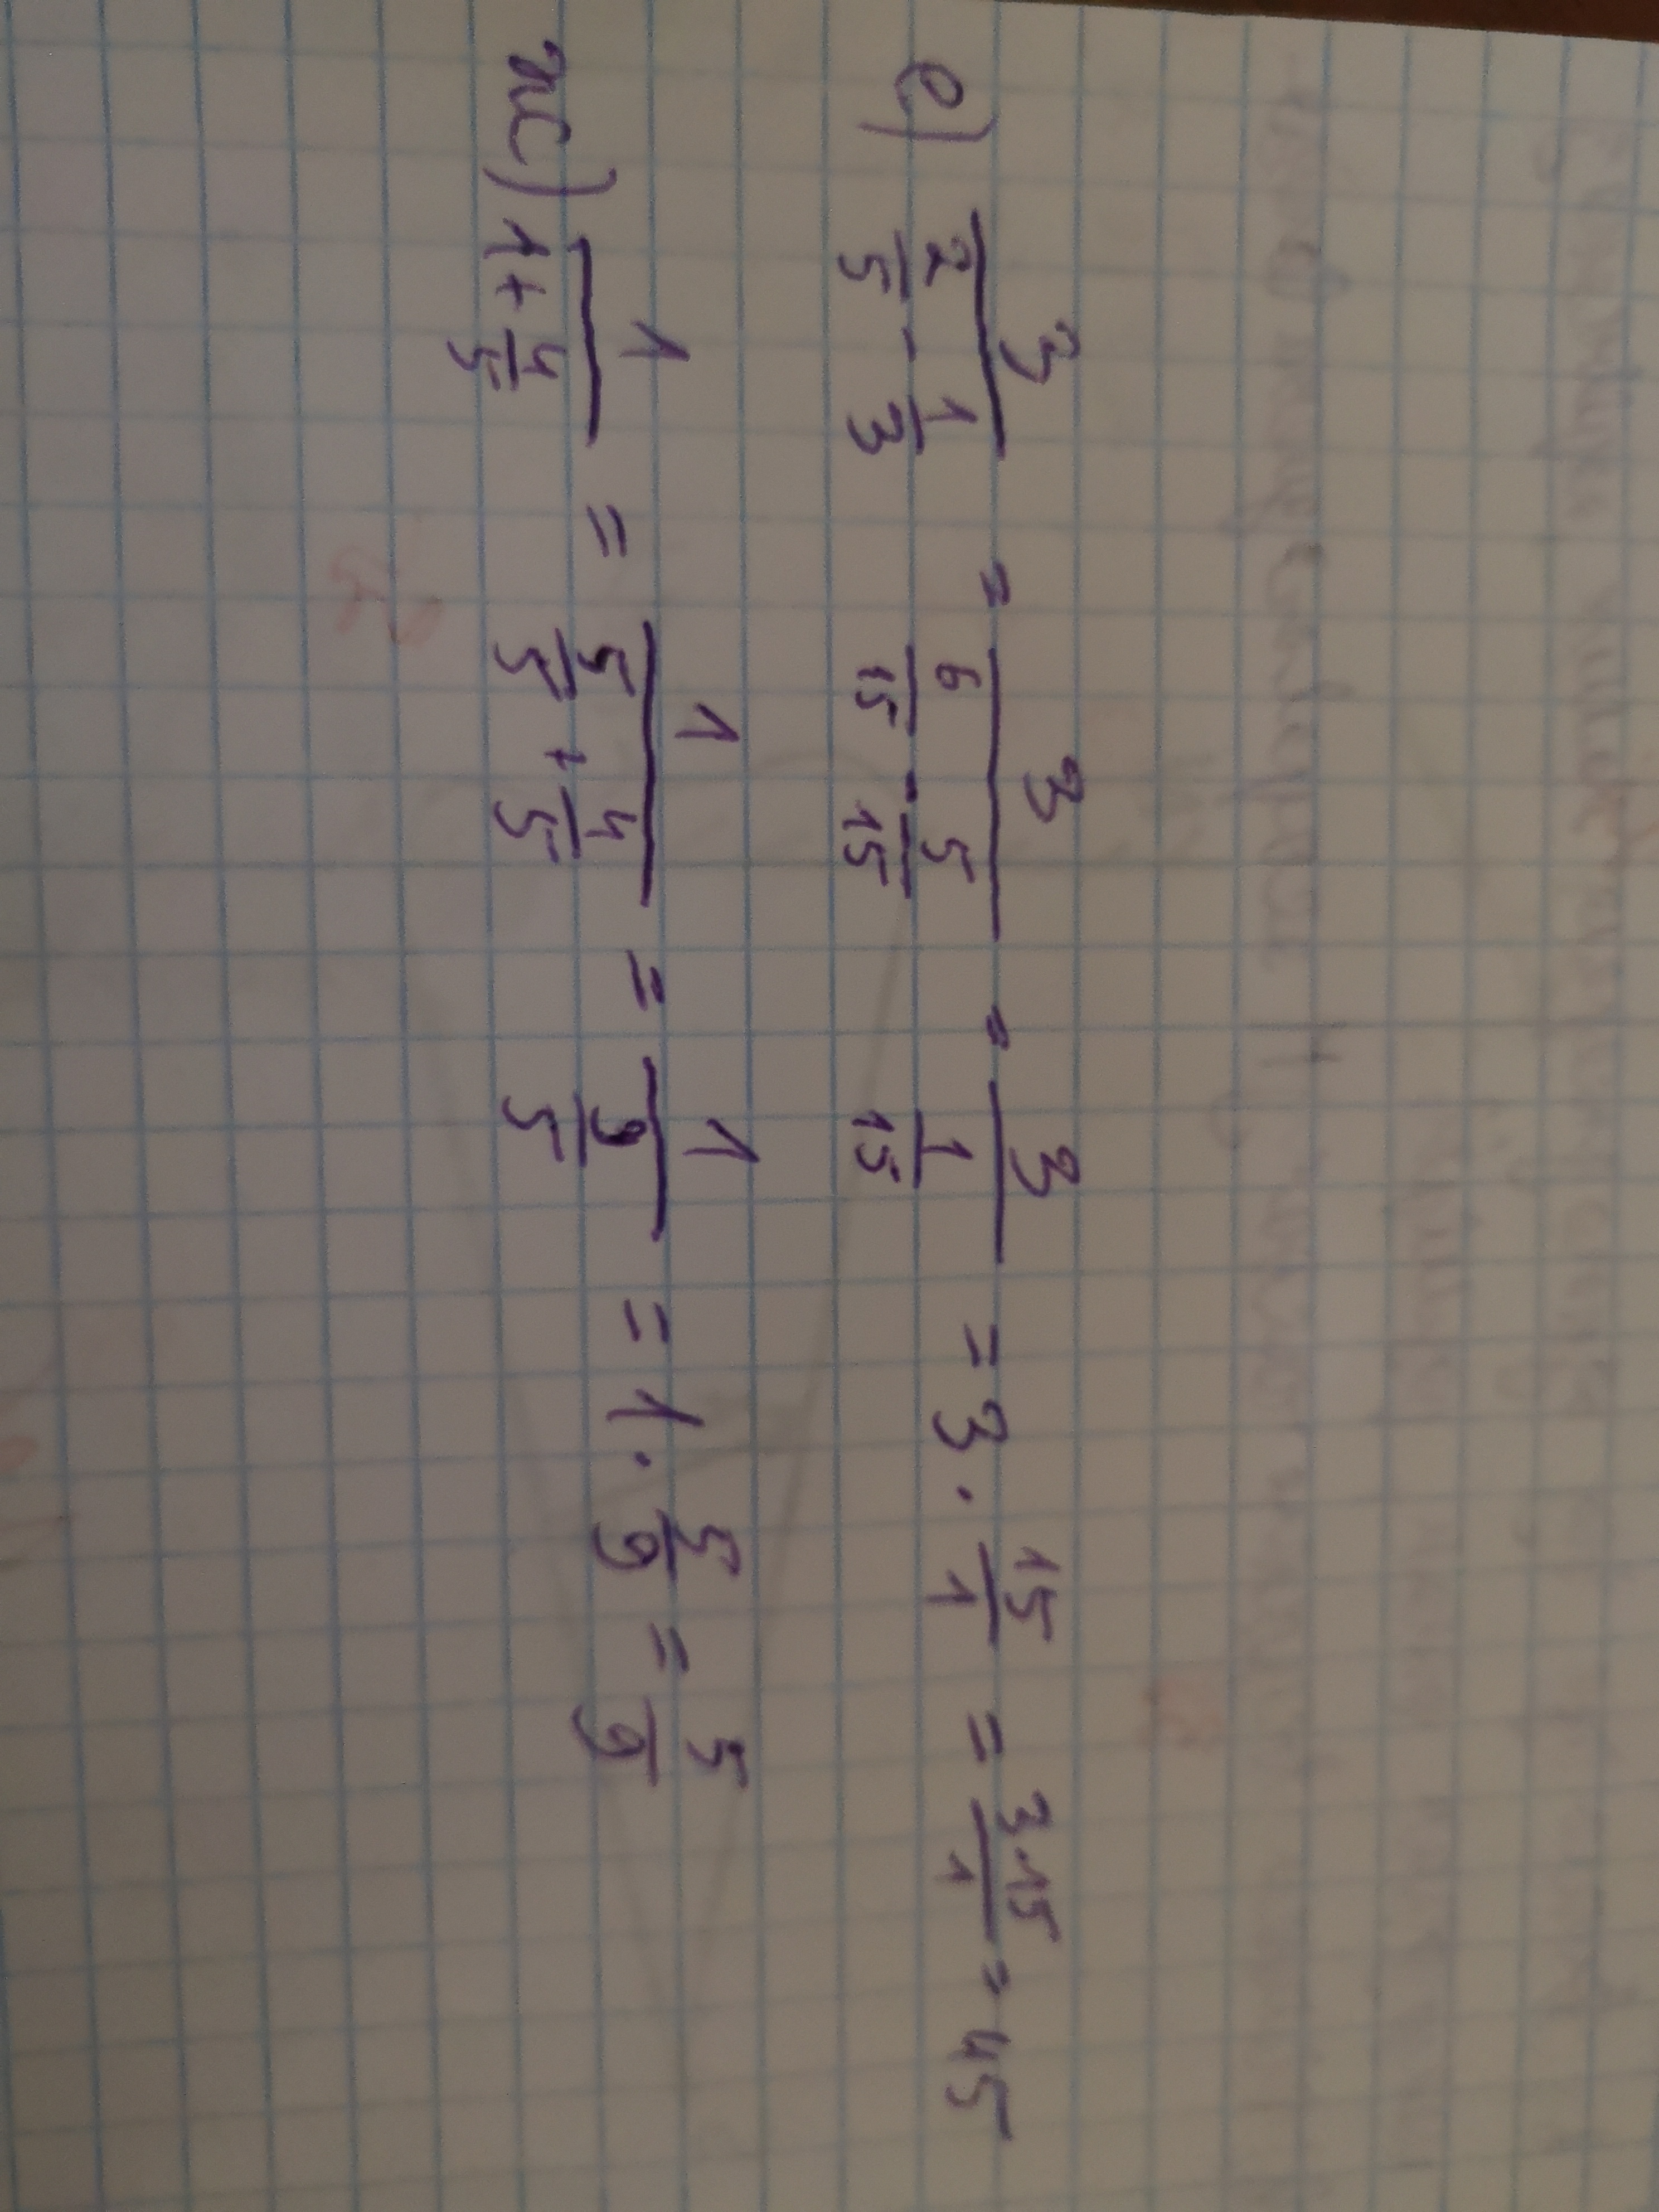 е) 3/(2/5 - 1/3) = 3/(6/15 - 5/15) = 3/(1/15) = 3 · 15/1 = 3·15/1 = 45
ж) 1/(1 + 4/5) = 1/(5/5 + 4/5) = 1/(9/5) = 1 · 5/9 = 5/9